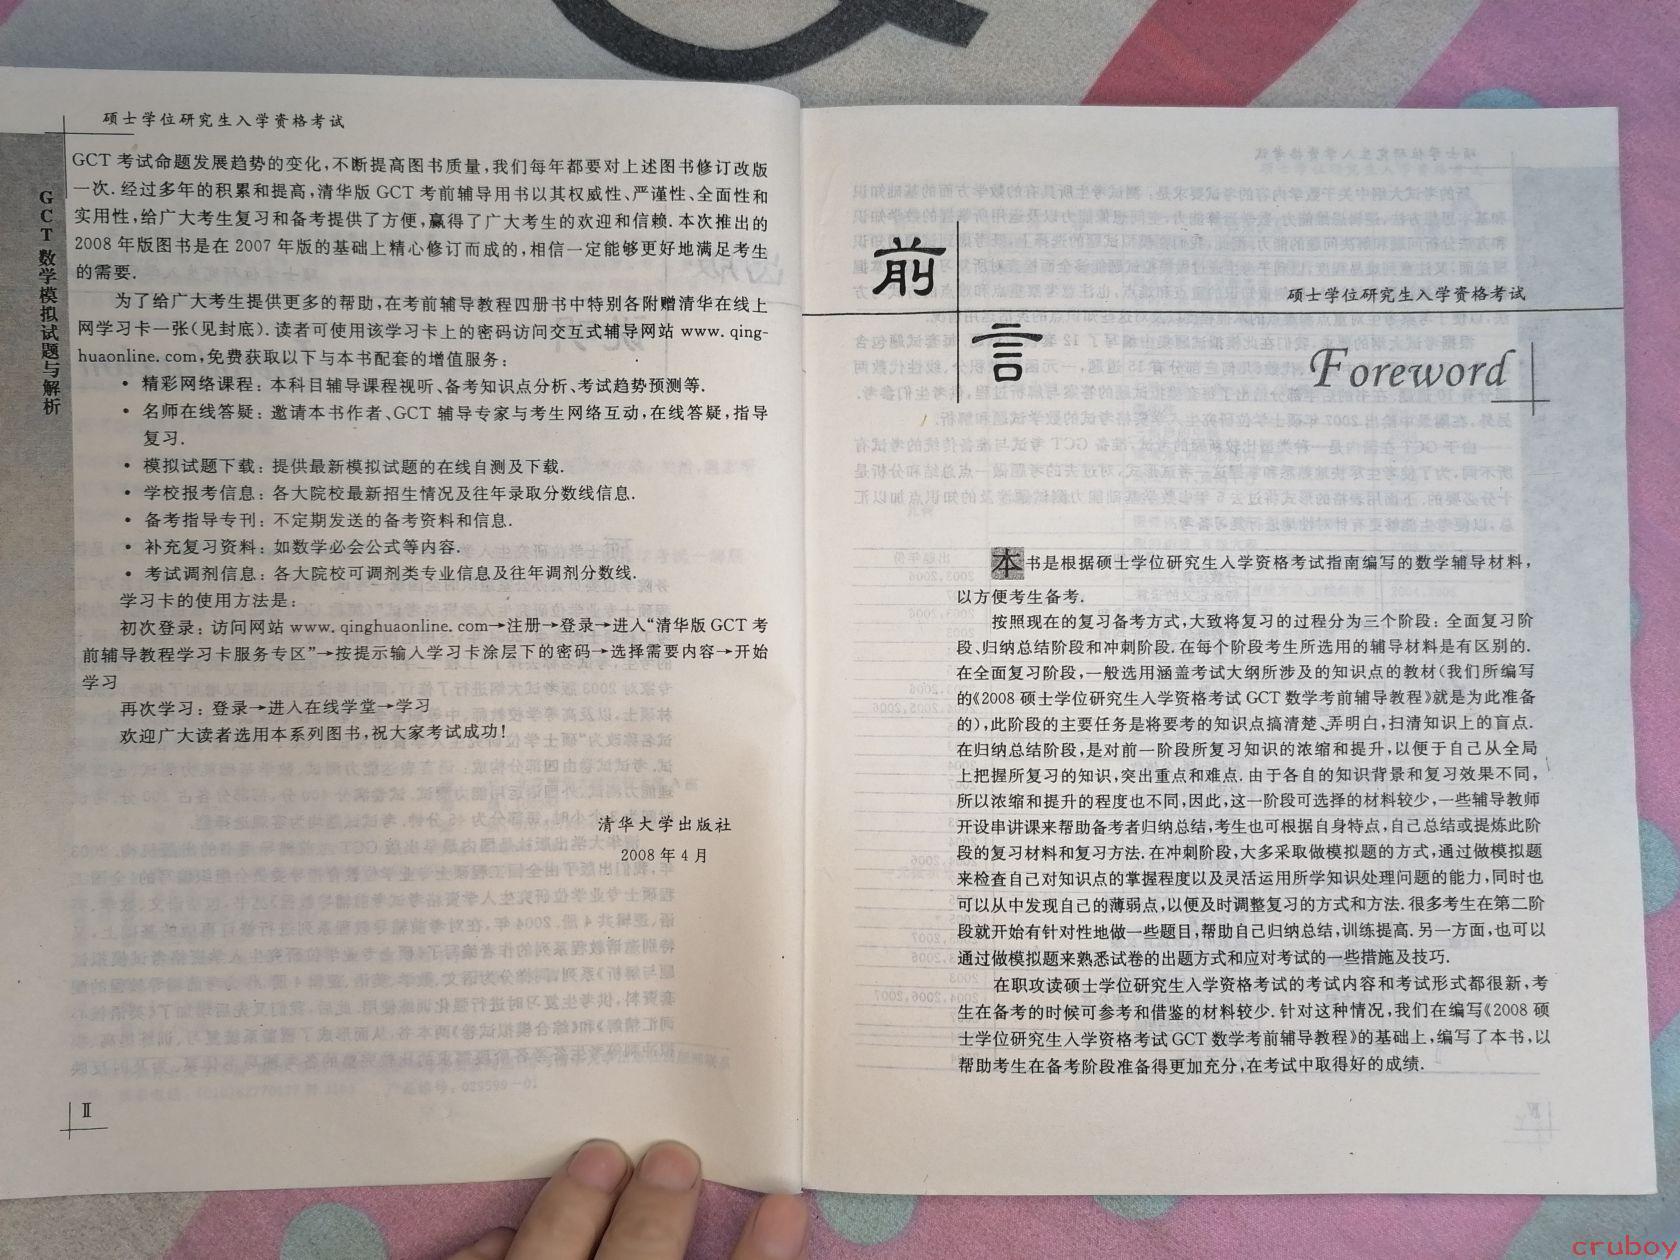 硕士学位研究生入学资格考试
GCT数学模拟试题与解析
GCT 考试命题发展趋势的变化,不断提高图书质量,我们每年都要对上述图书修订改版
一次.经过多年的积累和提高,清华版 GCT 考前辅导用书以其权威性、严谨性、全面性和
实用性,给广大考生复习和备考提供了方便,赢得了广大考生的欢迎和信赖.本次推出的
2008 年版图书是在 2007 年版的基础上精心修订而成的,相信一定能够更好地满足考生
的需要.
为了给广大考生提供更多的帮助,在考前辅导教程四册书中特别各附赠清华在线上
网学习卡一张(见封底).读者可使用该学习卡上的密码访问交互式辅导网站 www.qing-
huaonline.com,免费获取以下与本书配套的增值服务:
• 精彩网络课程: 本科目辅导课程视听、备考知识点分析、考试趋势预测等.
• 名师在线答疑: 邀请本书作者、GCT 辅导专家与考生网络互动,在线答疑,指导
复习.
• 模拟试题下载: 提供最新模拟试题的在线自测及下载.
• 学校报考信息: 各大院校最新招生情况及往年录取分数线信息.
• 备考指导专刊: 不定期发送的备考资料和信息.
• 补充复习资料: 如数学必会公式等内容.
• 考试调剂信息: 各大院校可调剂类专业信息及往年调剂分数线.
学习卡的使用方法是:
初次登录: 访问网站 www.qinghuaonline.com→注册→登录→进入“清华版 GCT 考
前辅导教程学习卡服务专区”→按提示输入学习卡涂层下的密码→选择需要内容→开始
学习
再次学习: 登录→进入在线学堂→学习
欢迎广大读者选用本系列图书,祝大家考试成功!
清华大学出版社
2008 年 4 月
Ⅱ
前言
硕士学位研究生入学资格考试
Foreword
本书是根据硕士学位研究生入学资格考试指南编写的数学辅导材料,
以方便考生备考.
按照现在的复习备考方式,大致将复习的过程分为三个阶段: 全面复习阶
段、归纳总结阶段和冲刺阶段.在每个阶段考生所选用的辅导材料是有区别的.
在全面复习阶段,一般选用涵盖考试大纲所涉及的知识点的教材(我们所编写
的《2008 硕士学位研究生入学资格考试 GCT 数学考前辅导教程》就是为此准备
的),此阶段的主要任务是将要考的知识点搞清楚、弄明白,扫清知识上的盲点.
在归纳总结阶段,是对前一阶段所复习知识的浓缩和提升,以便于自己从全局
上把握所复习的知识,突出重点和难点.由于各自的知识背景和复习效果不同,
所以浓缩和提升的程度也不同,因此,这一阶段可选择的材料较少,一些辅导教师
开设串讲课来帮助备考者归纳总结,考生也可根据自身特点,自己总结或提炼此阶
段的复习材料和复习方法.在冲刺阶段,大多采取做模拟题的方式,通过做模拟题
来检查自己对知识点的掌握程度以及灵活运用所学知识处理问题的能力,同时也
可以从中发现自己的薄弱点,以便及时调整复习的方式和方法.很多考生在第二阶
段就开始有针对性地做一些题目,帮助自己归纳总结,训练提高.另一方面,也可以
通过做模拟题来熟悉试卷的出题方式和应对考试的一些措施及技巧.
在职攻读硕士学位研究生入学资格考试的考试内容和考试形式都很新,考
生在备考的时候可参考和借鉴的材料较少.针对这种情况,我们在编写《2008 硕
士学位研究生入学资格考试 GCT 数学考前辅导教程》的基础上,编写了本书,以
帮助考生在备考阶段准备得更加充分,在考试中取得好的成绩.
cruboy